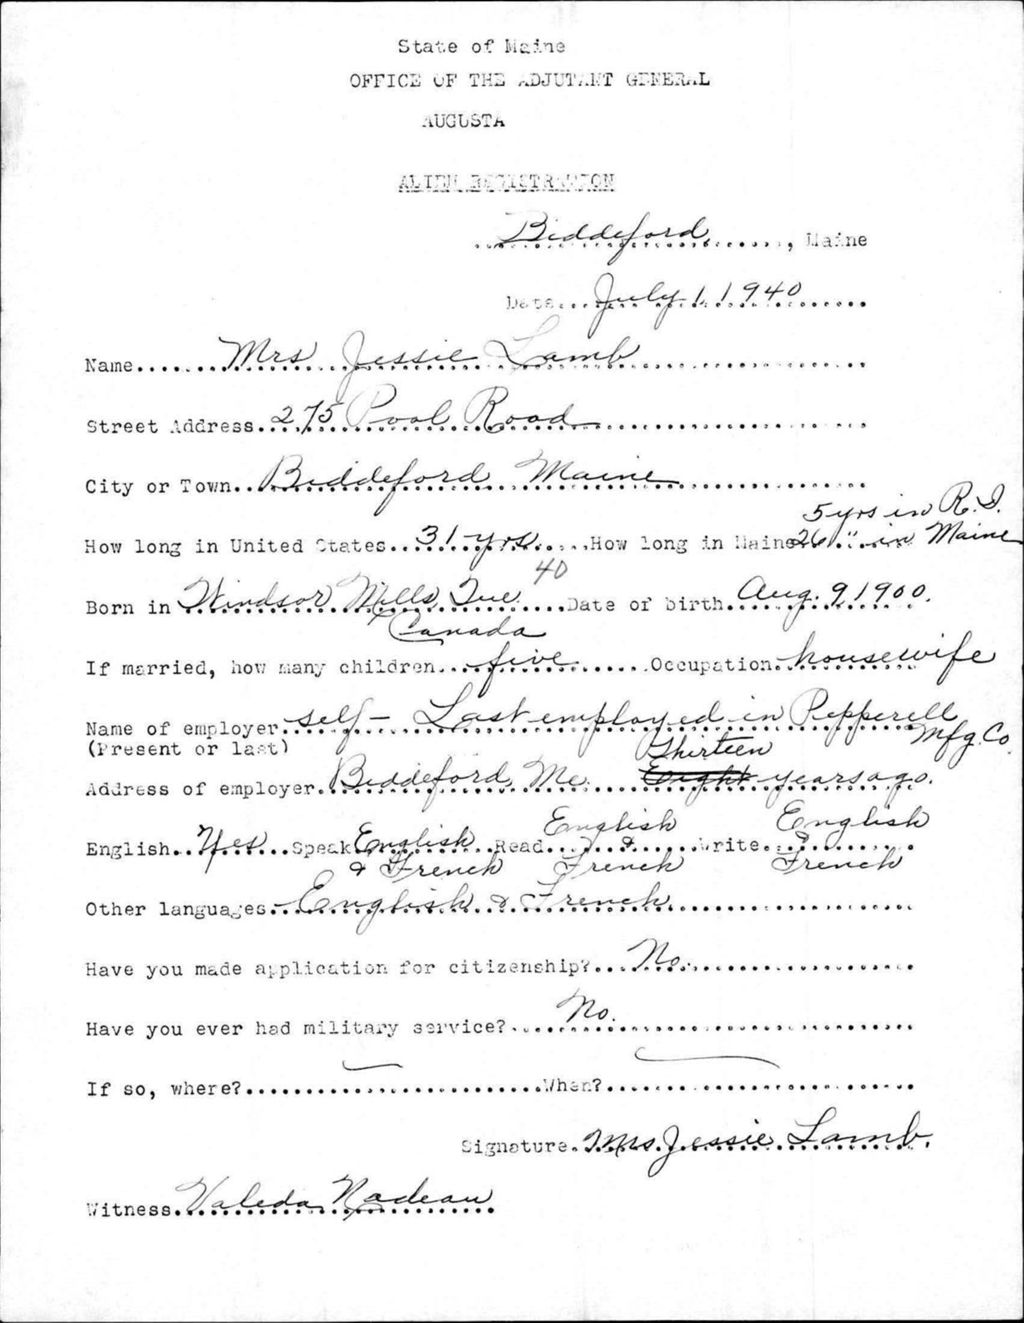 State of Maine
OFFICE OF THE ADJUTANT GENERAL
AUGUSTA
ALIEN REGISTRATION
Biddeford, Maine
Date July 1, 1940
Name Mrs Jessie Lamb
Street Address 275 Pool Road
City or Town Biddeford Maine
5 yrs in R.I.
How long in United States 31 yrs. How long in Maine 26 " in Maine
40
Born in Windsor Mills Que. Date of birth Aug. 9 1900.
Canada
If married, how many children five Occupation housewife
Name of employer self - Last employed in Pepperell
(Present or last) Mfg. Co.
Thirteen
Address of employer Biddeford, Me. Eight years ago.
English English
English Yes Speak English Read & Write &
& French French French
Other languages English & French
Have you made application for citizenship? No.
Have you ever had military service? No.
If so, where? When?
Signature Mrs. Jessie Lamb.
Witness Valeda Nadeau